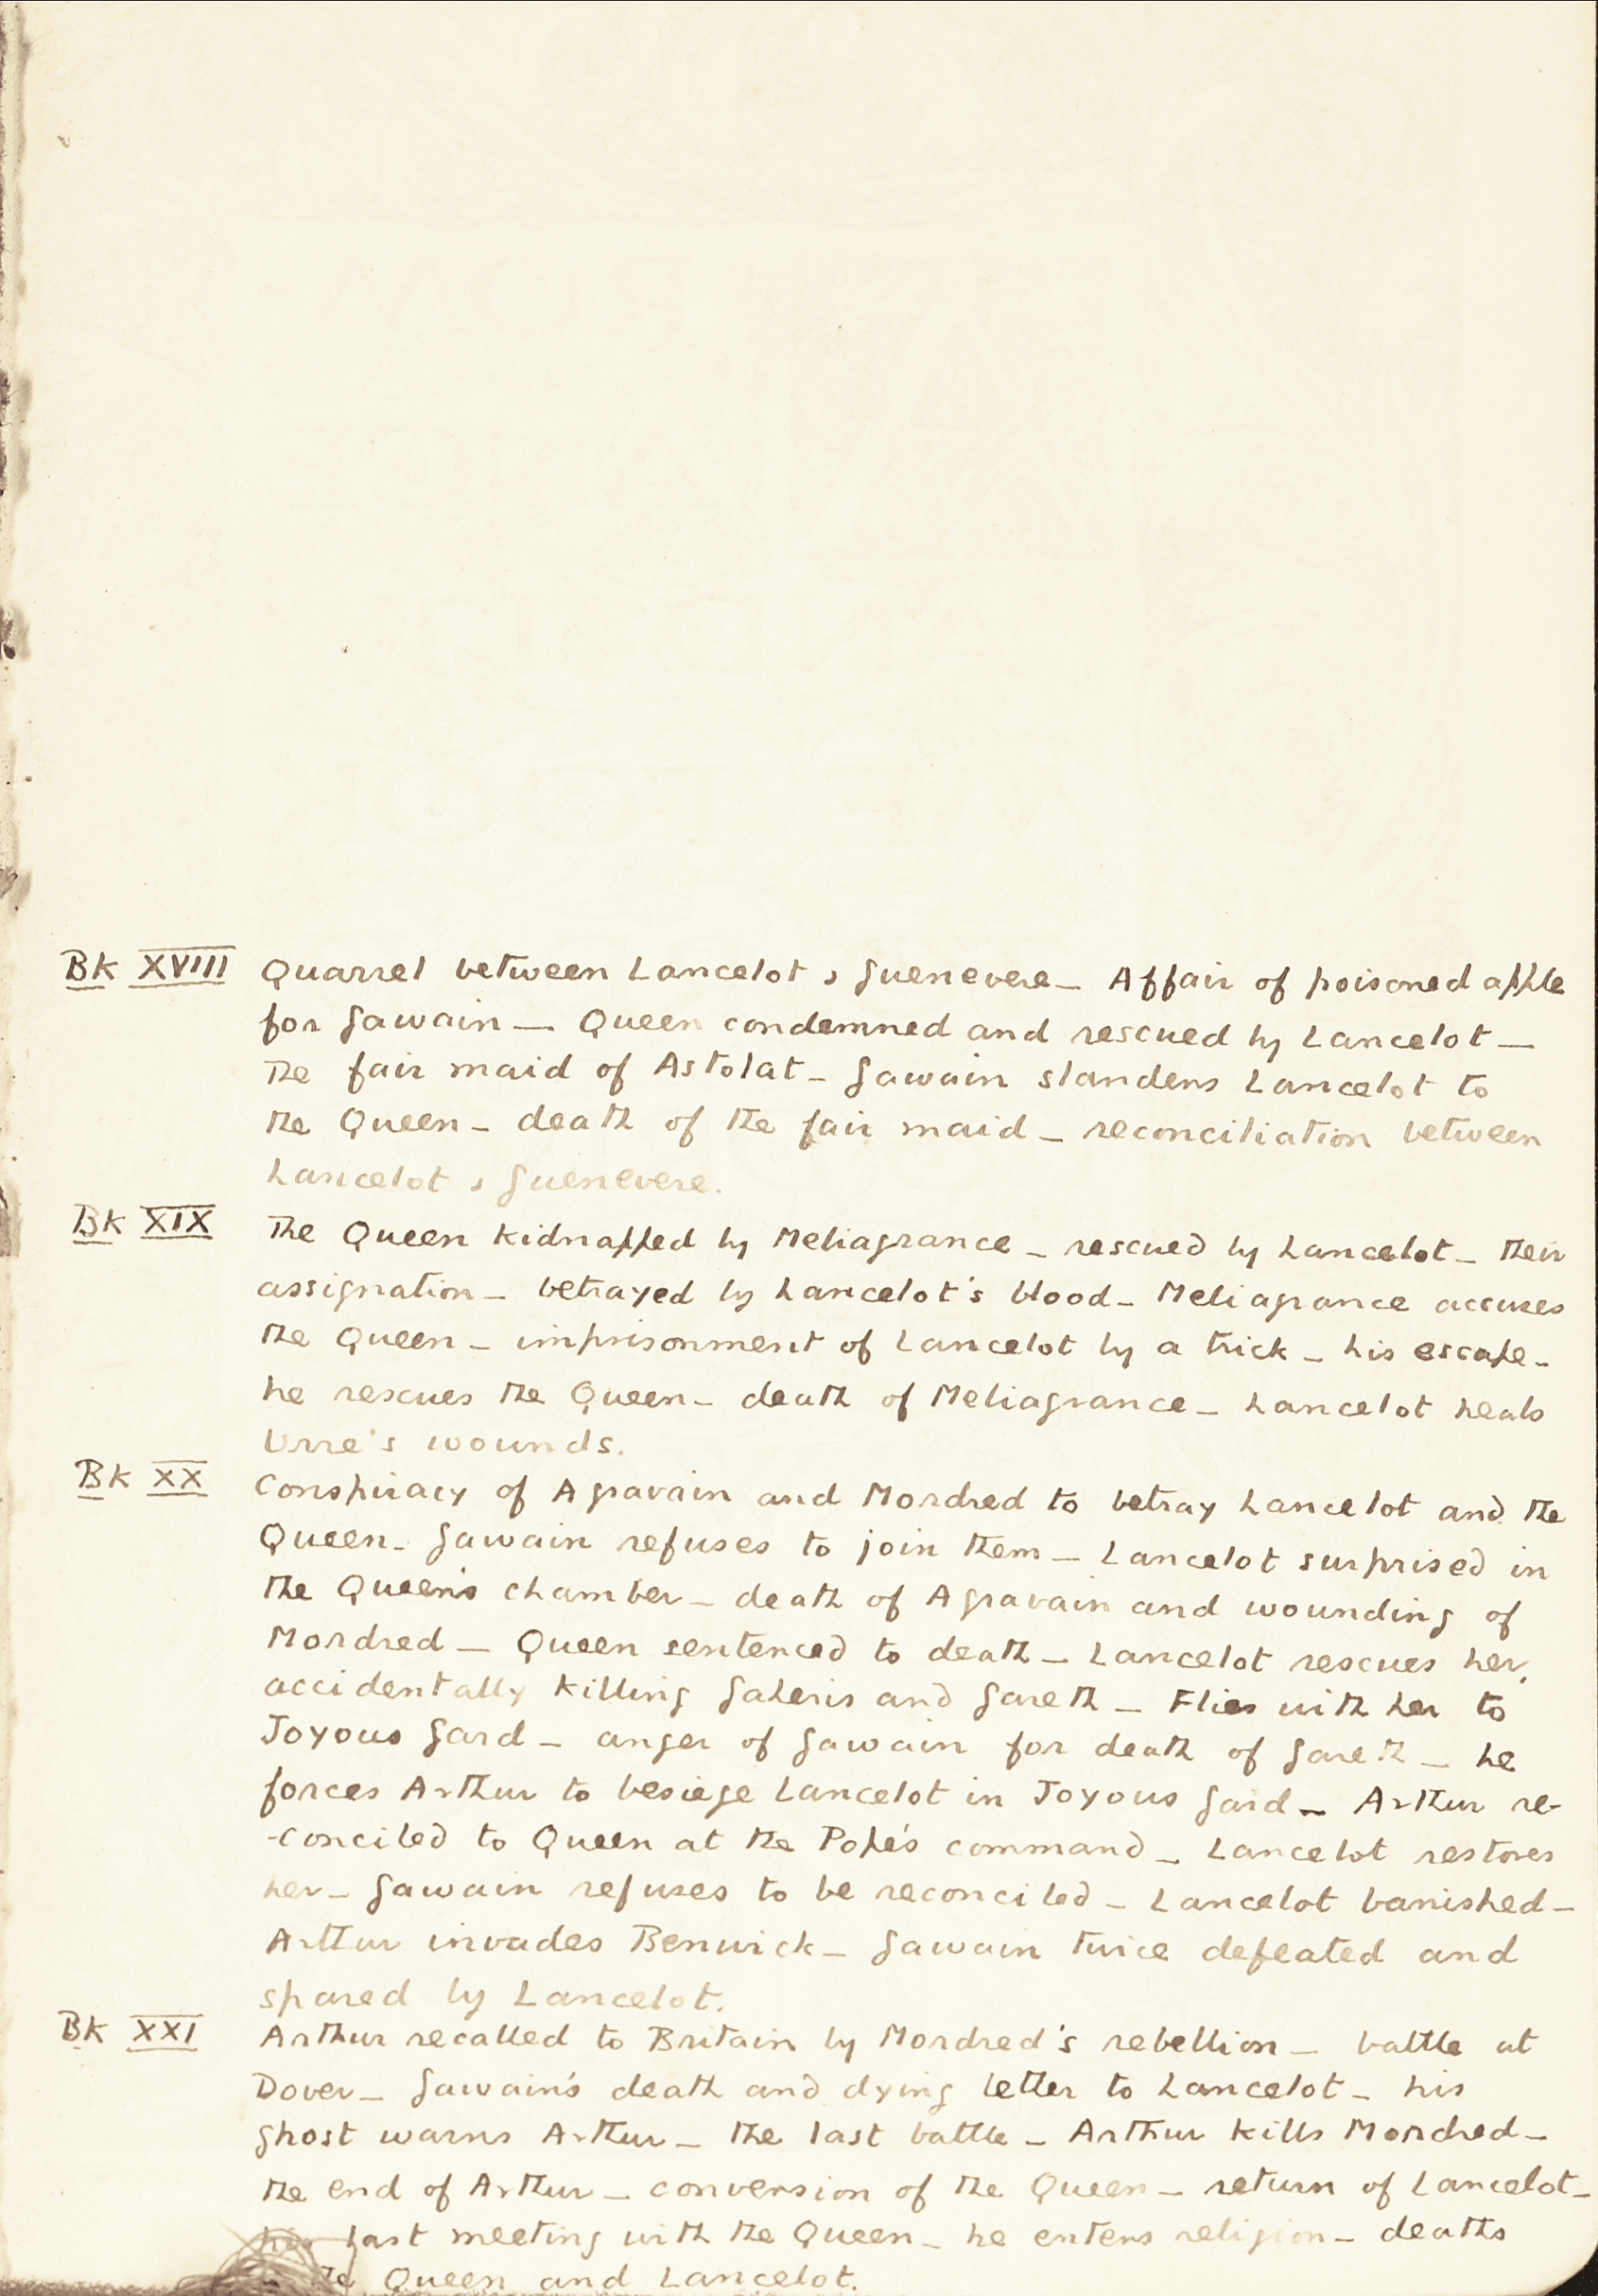 Bk XVIII Quarrel between Lancelot & Guenevere — Affair of poisoned apple
for Gawain — Queen condemned and rescued by Lancelot —
The fair maid of Astolat — Gawain slanders Lancelot to
the Queen — death of the fair maid — reconciliation between
Lancelot & Guenevere.
Bk XIX The Queen kidnapped by Meliagrance — rescued by Lancelot — their
assignation — betrayed by Lancelot's blood — Meliagrance accuses
the Queen — imprisonment of Lancelot by a trick — his escape —
he rescues the Queen — death of Meliagrance — Lancelot heals
Urre's wounds.
Bk XX Conspiracy of Agravain and Mordred to betray Lancelot and the
Queen — Gawain refuses to join them — Lancelot surprised in
the Queen's chamber — death of Agravain and wounding of
Mordred — Queen sentenced to death — Lancelot rescues her,
accidentally killing Gaheris and Gareth — Flies with her to
Joyous Gard — anger of Gawain for death of Gareth — he
forces Arthur to besiege Lancelot in Joyous Gard — Arthur re-
-conciled to Queen at the Pope's command — Lancelot restores
her — Gawain refuses to be reconciled — Lancelot banished —
Arthur invades Benwick — Gawain twice defeated and
spared by Lancelot.
Bk XXI Arthur recalled to Britain by Mordred's rebellion — battle at
Dover — Gawain's death and dying letter to Lancelot — his
ghost warns Arthur — the last battle — Arthur kills Mordred —
the end of Arthur — conversion of the Queen — return of Lancelot —
his last meeting with the Queen — he enters religion — deaths
the Queen and Lancelot.